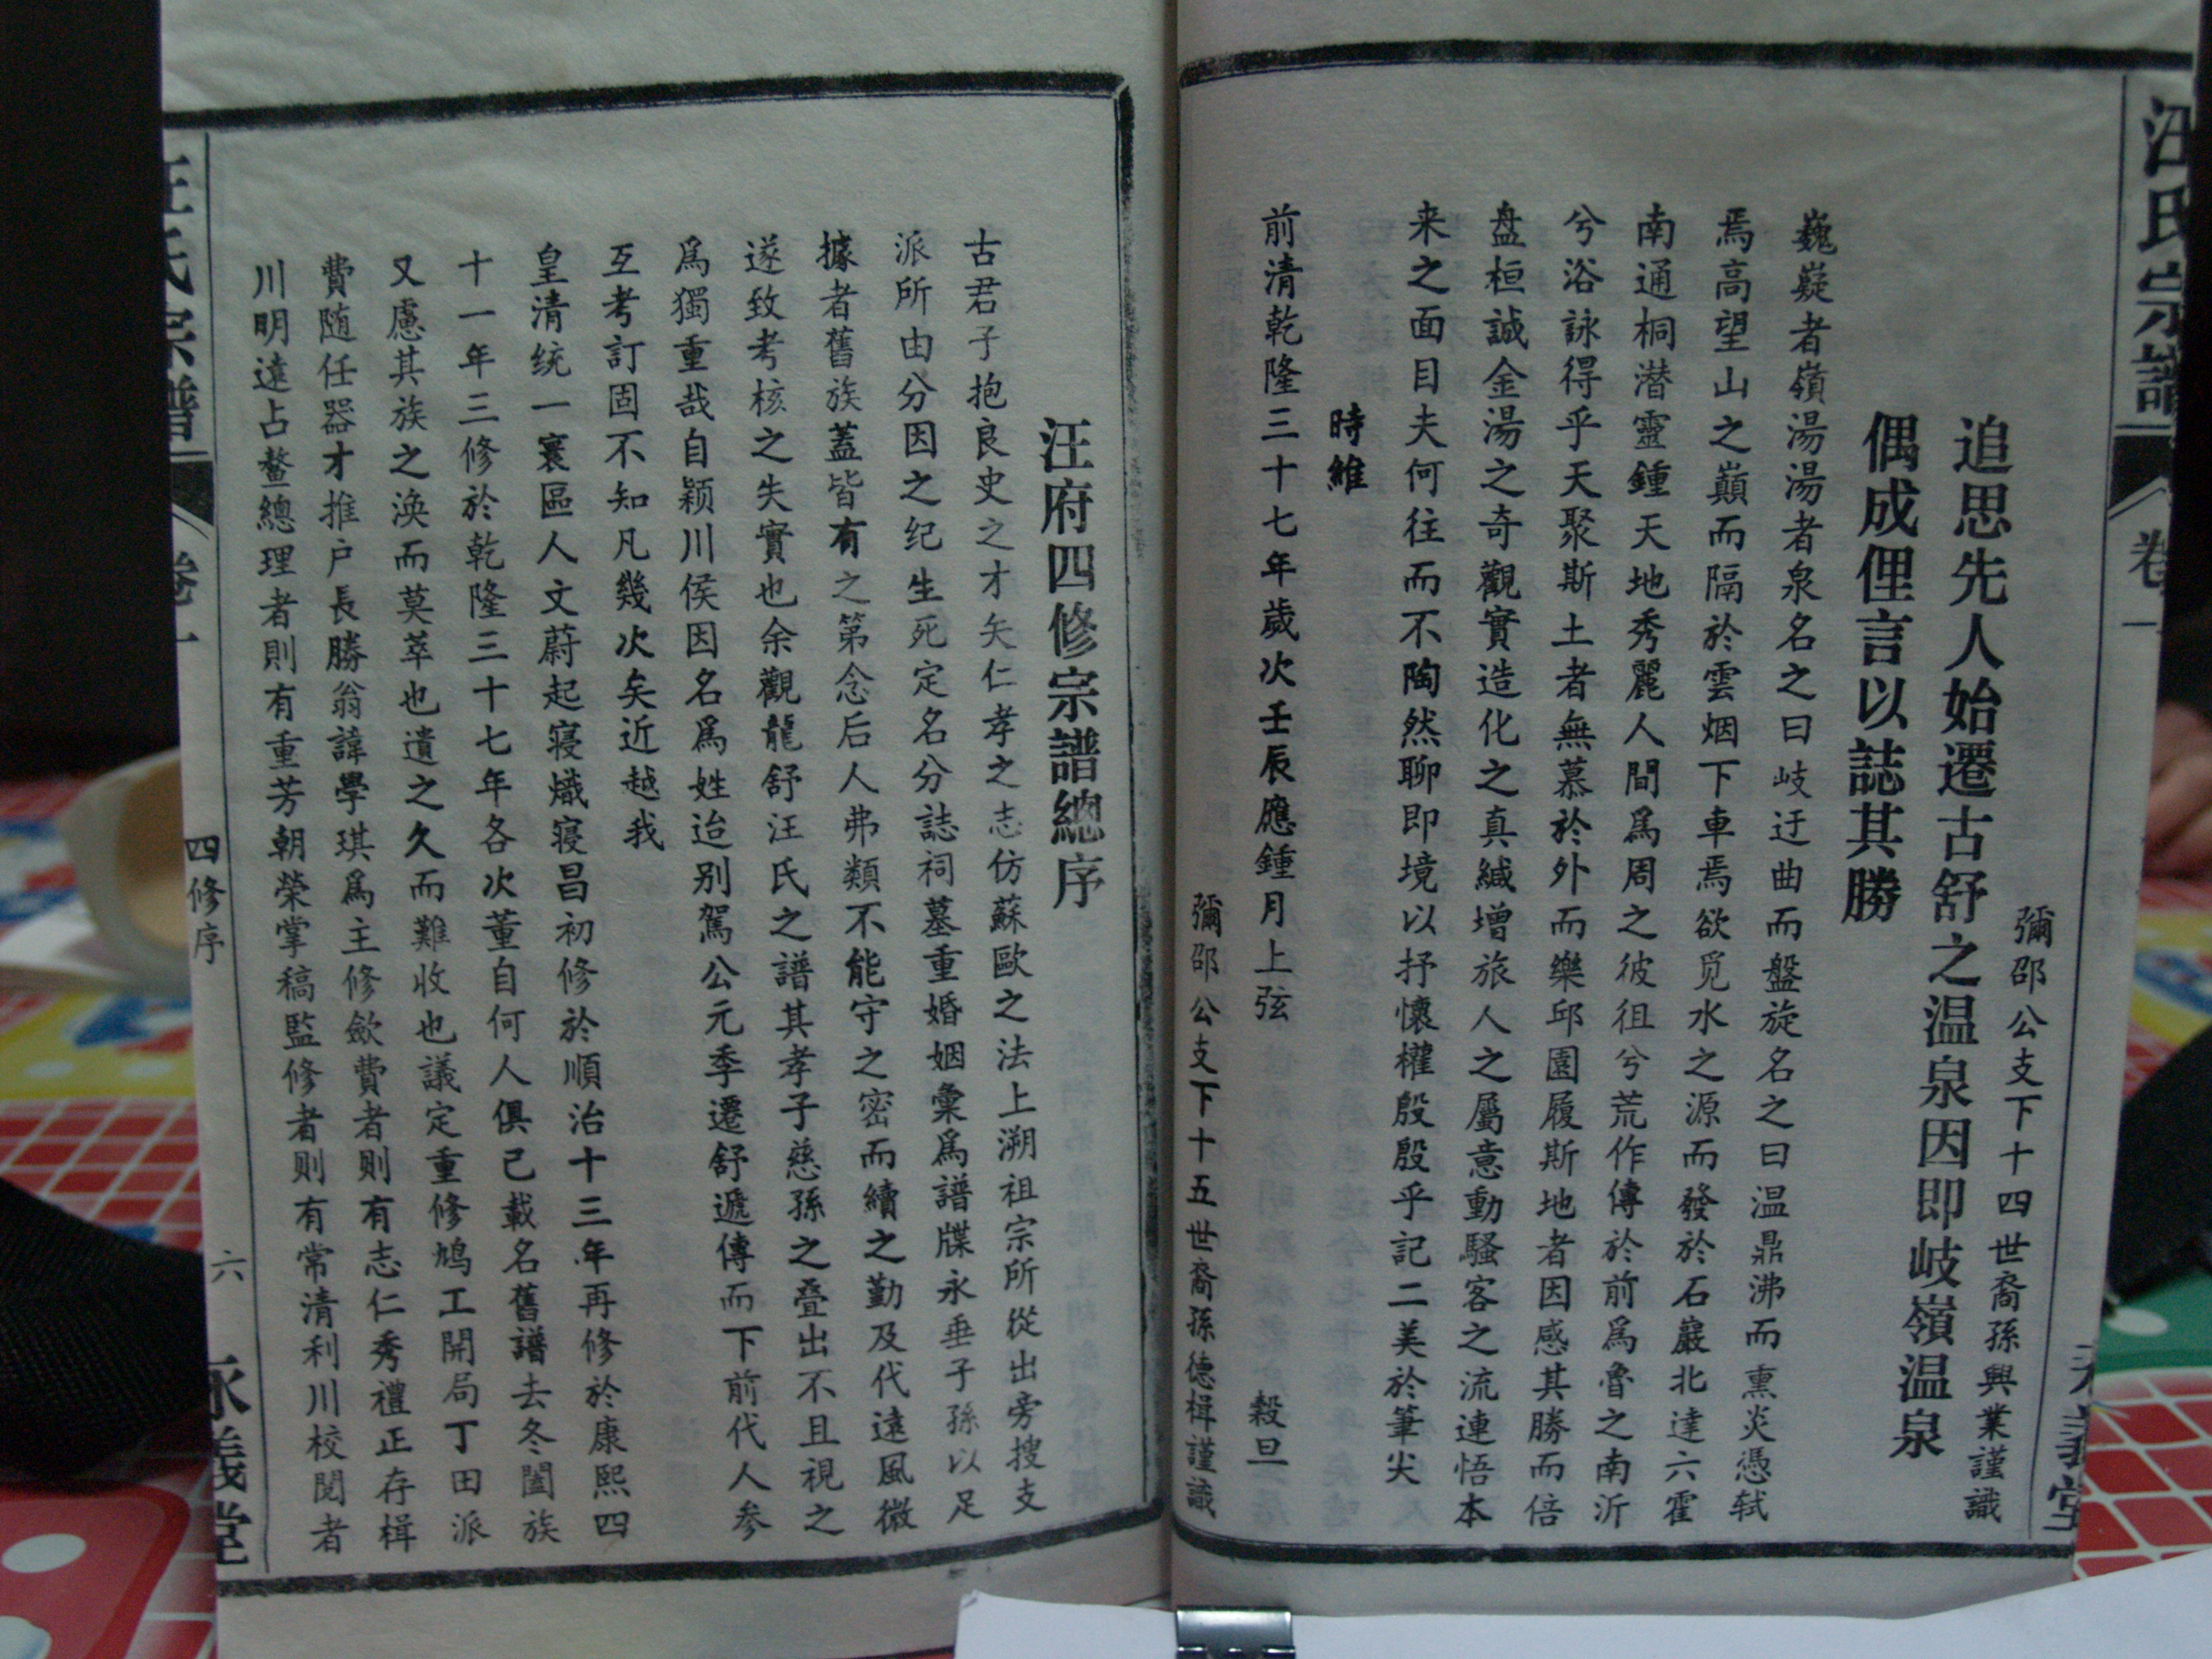 汪氏宗譜
卷一
永義堂
彌邵公支下十四世裔孫興業謹識
追思先人始遷古舒之温泉因即岐嶺温泉
偶成俚言以誌其勝
巍嶷者嶺湯湯者泉名之曰岐迂曲而盤旋名之曰温鼎沸而熏炎憑轼
焉高望山之巔而隔於雲烟下車焉欲覓水之源而發於石巖北達六霍
南通桐潜靈鍾天地秀麗人間爲周之彼徂兮荒作傳於前爲魯之南沂
兮浴詠得乎天聚斯土者無慕於外而樂邱園履斯地者因感其勝而倍
盘桓誠金湯之奇觀實造化之真緘增旅人之屬意動騷客之流連悟本
来之面目夫何往而不陶然聊即境以抒懷權殷殷乎記二美於筆尖
時維
前清乾隆三十七年歲次壬辰應鍾月上弦 穀旦
彌邵公支下十五世裔孫德楫謹識
汪府四修宗譜總序
古君子抱良史之才矢仁孝之志仿蘇歐之法上溯祖宗所從出旁搜支
派所由分因之纪生死定名分誌祠墓重婚姻彙爲譜牒永垂子孫以足
據者舊族蓋皆有之第念后人弗類不能守之密而續之勤及代遠風微
遂致考核之失實也余觀龍舒汪氏之譜其孝子慈孫之叠出不且視之
爲獨重哉自颖川侯因名爲姓迨别駕公元季遷舒遞傳而下前代人参
互考訂固不知凡幾次矣近越我
皇清统一寰區人文蔚起寝熾寝昌初修於順治十三年再修於康熙四
十一年三修於乾隆三十七年各次董自何人俱己載名舊譜去冬闔族
又慮其族之渙而莫萃也遺之久而難收也議定重修鳩工開局丁田派
費随任器才推户長勝翁諱學琪爲主修斂費者則有志仁秀禮正存楫
川明達占鳌總理者則有重芳朝榮掌稿監修者则有常清利川校閱者
汪氏宗譜
卷一
四修序
六
永義堂